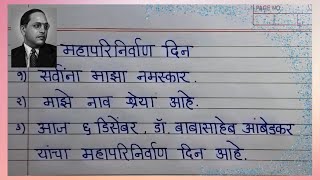 PAGE NO.
महापरिनिर्वाण दिन
१) सर्वांना माझा नमस्कार.
२) माझे नाव श्रेया आहे.
३) आज ६ डिसेंबर, डॉ. बाबासाहेब आंबेडकर
यांचा महापरिनिर्वाण दिन आहे.